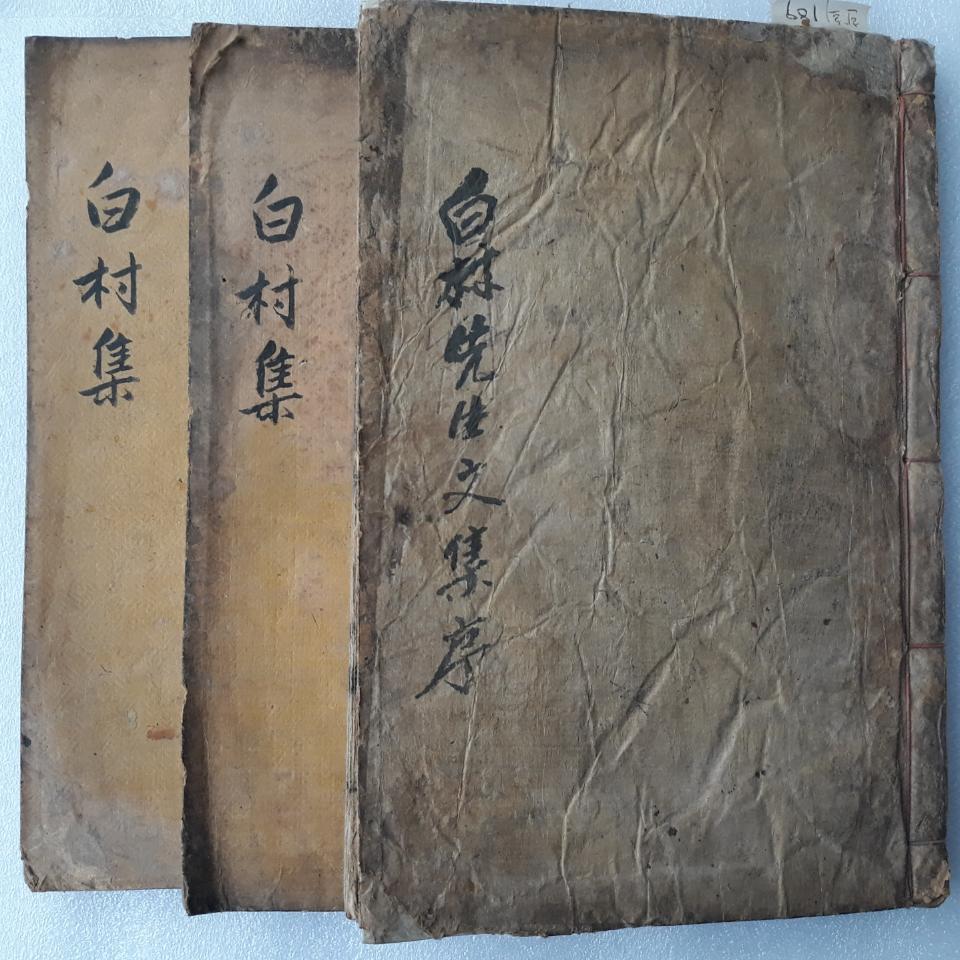 白村先生文集序
白村集
白村集